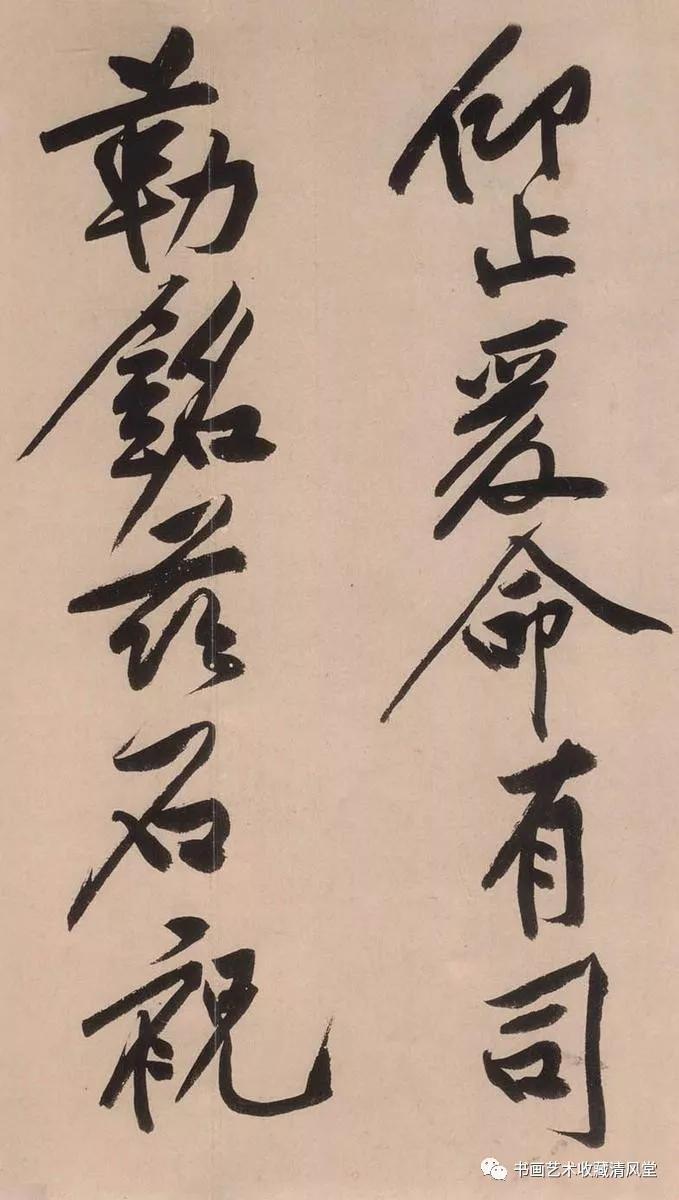 仰止爰命有司
勒銘茲石祝
书画艺术收藏清风堂